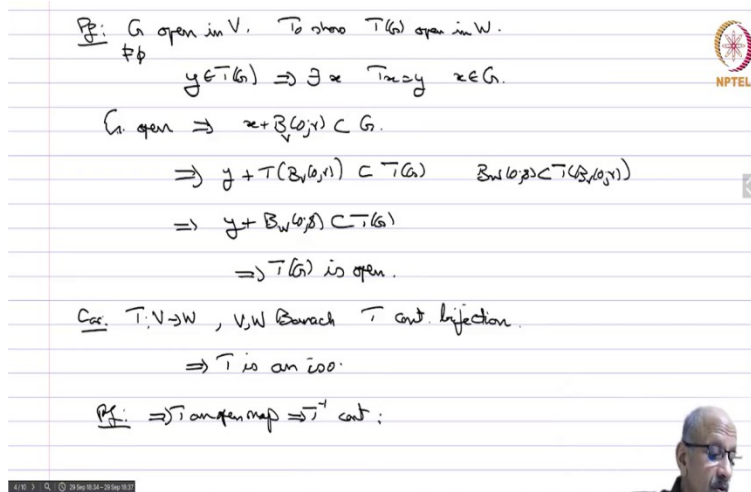 Pf: G open in V. To show T(G) open in W.
≠φ
y∈T(G) ⇒ ∃x Tx=y x∈G.
G open ⇒ x+B_V(0;r) ⊂ G.
⇒ y+T(B_V(0;r)) ⊂ T(G) B_W(0;δ)⊂T(B_V(0;r))
⇒ y+B_W(0;δ)⊂T(G)
⇒ T(G) is open.
Cor. T:V→W, V,W Banach T cont. bijection.
⇒ T is an iso.
Pf: ⇒ T an open map ⇒ T⁻¹ cont.
NPTEL
4/10 29 Sep 18:34 – 29 Sep 18:37